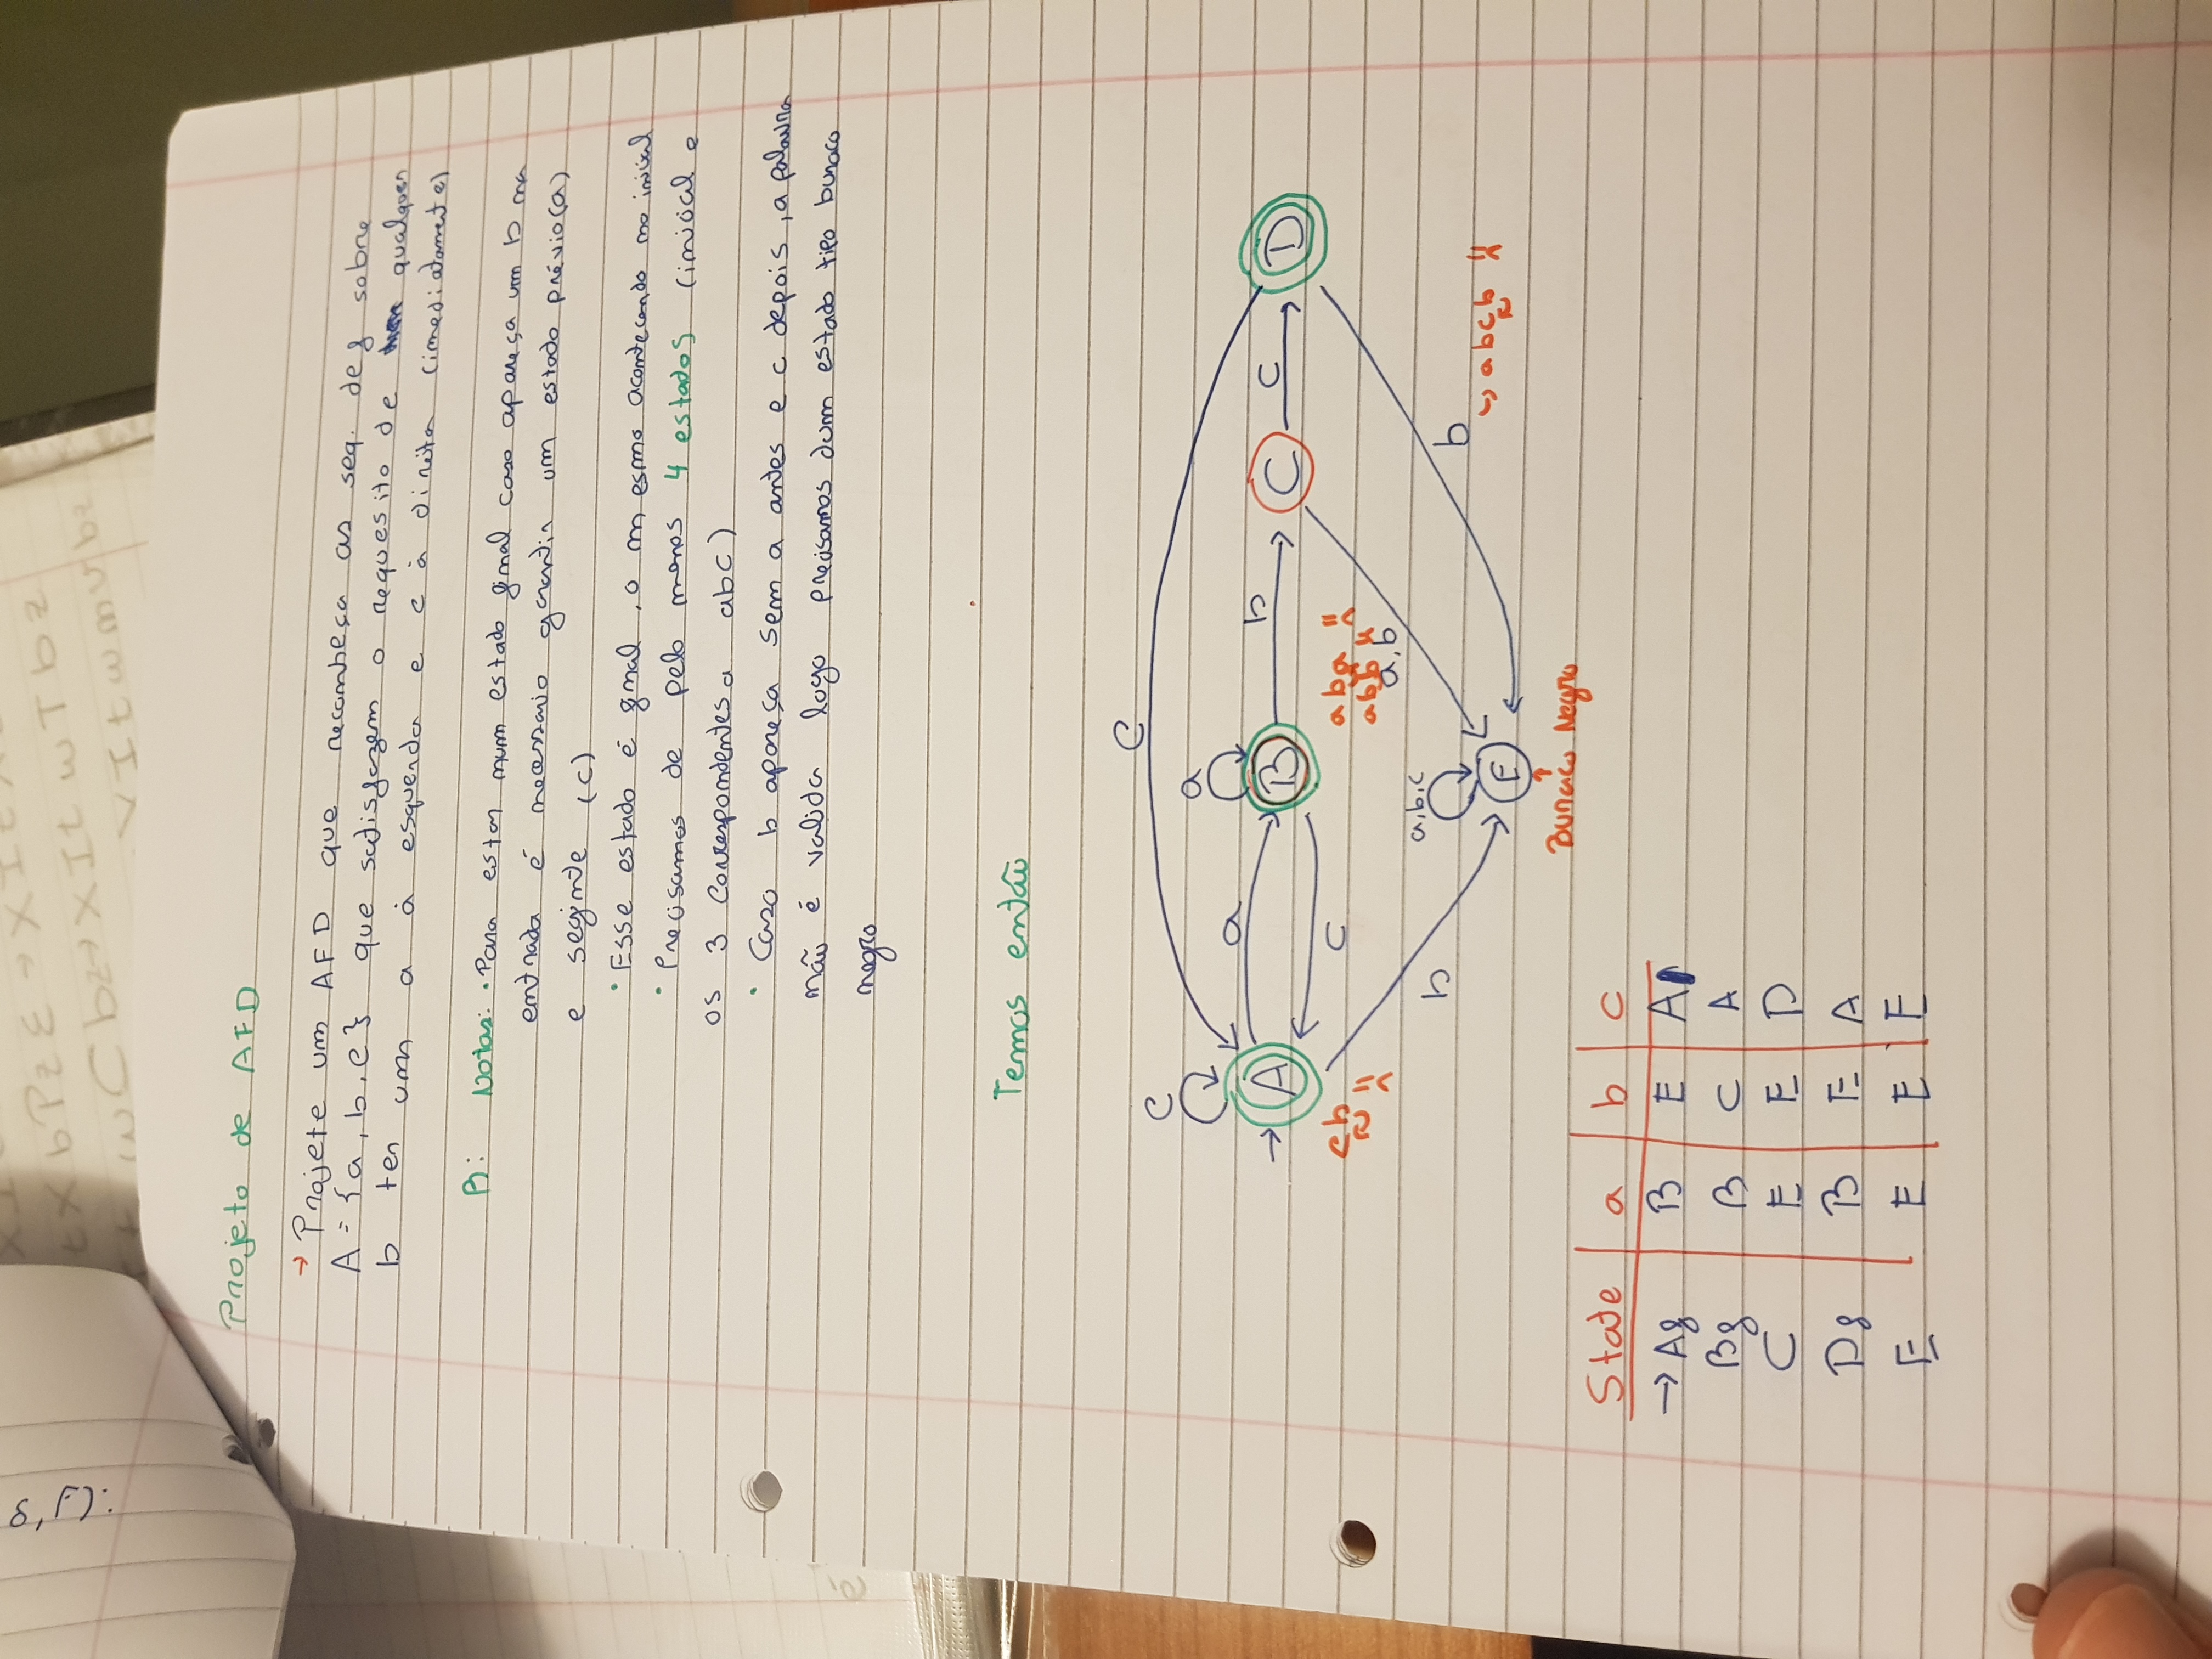 δ, F):
tXbPzE → XIt
wCbz → XItwTbz
VItwmvbz
Projeto de AFD
→ Projete um AFD que reconheça as seq. def sobre
A = {a, b, c} que satisfazem o requesito de qualquer
b ter um a à esquerda e c à direita (imediatamente)
R: Notas: • Para estar num estado final caso apareça um b na
entrada é necessario garantir um estado prévio (a)
e seginte (c)
• Esse estado é final, o mesmo acontecendo no inicial
• Precisamos de pelo menos 4 estados (inicial e
os 3 correspondentes a abc)
• Caso b apareça sem a antes e c depois, a palavra
não é valida logo precisamos dum estado tipo buraco
negro
é
Temos então
c
c
a
a
b
c
→ A
B
C
D
c
cb
aba
abb
a,b
a,b,c
b
b
↳ abcb
E
↑
Buraco Negro
State a b c
→ Af B E A
Bf B C A
C E E D
Df B E A
E E E E